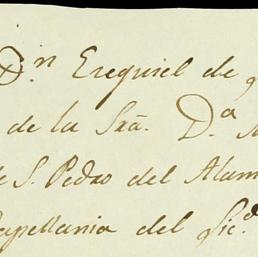 Dn Ezequiel de
de la Sra. Da
S. Pedro del Alam
Capellania del Licd